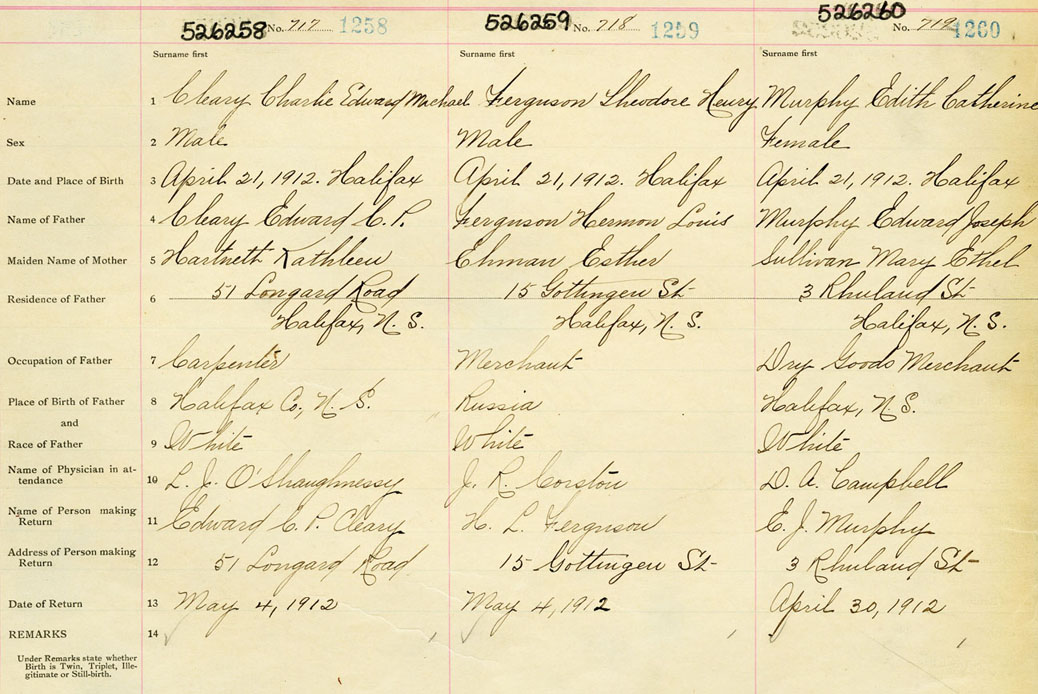 526258 No. 717 1258 526259 No. 718 1259 526260 No. 719 1260
Surname first Surname first Surname first
Name 1 Cleary Charlie Edward Michael Ferguson Theodore Henry Murphy Edith Catherine
Sex 2 Male Male Female
Date and Place of Birth 3 April 21, 1912. Halifax April 21, 1912. Halifax April 21, 1912. Halifax
Name of Father 4 Cleary Edward C. P. Ferguson Hermon Louis Murphy Edward Joseph
Maiden Name of Mother 5 Hartneth Kathleen Ehman Esther Sullivan Mary Ethel
Residence of Father 6 51 Longard Road 15 Gottingen St 3 Rhuland St
Halifax, N. S. Halifax, N. S. Halifax, N. S.
Occupation of Father 7 Carpenter Merchant Dry Goods Merchant
Place of Birth of Father 8 Halifax Co., N. S. Russia Halifax, N. S.
and
Race of Father 9 White White White
Name of Physician in at-
tendance 10 L. J. O'Shaughnessy J. R. Corston D. A. Campbell
Name of Person making
Return 11 Edward C. P. Cleary H. L. Ferguson E. J. Murphy
Address of Person making
Return 12 51 Longard Road 15 Gottingen St 3 Rhuland St
Date of Return 13 May 4, 1912 May 4, 1912 April 30, 1912
REMARKS 14
Under Remarks state whether
Birth is Twin, Triplet, Ille-
gitimate or Still-birth.